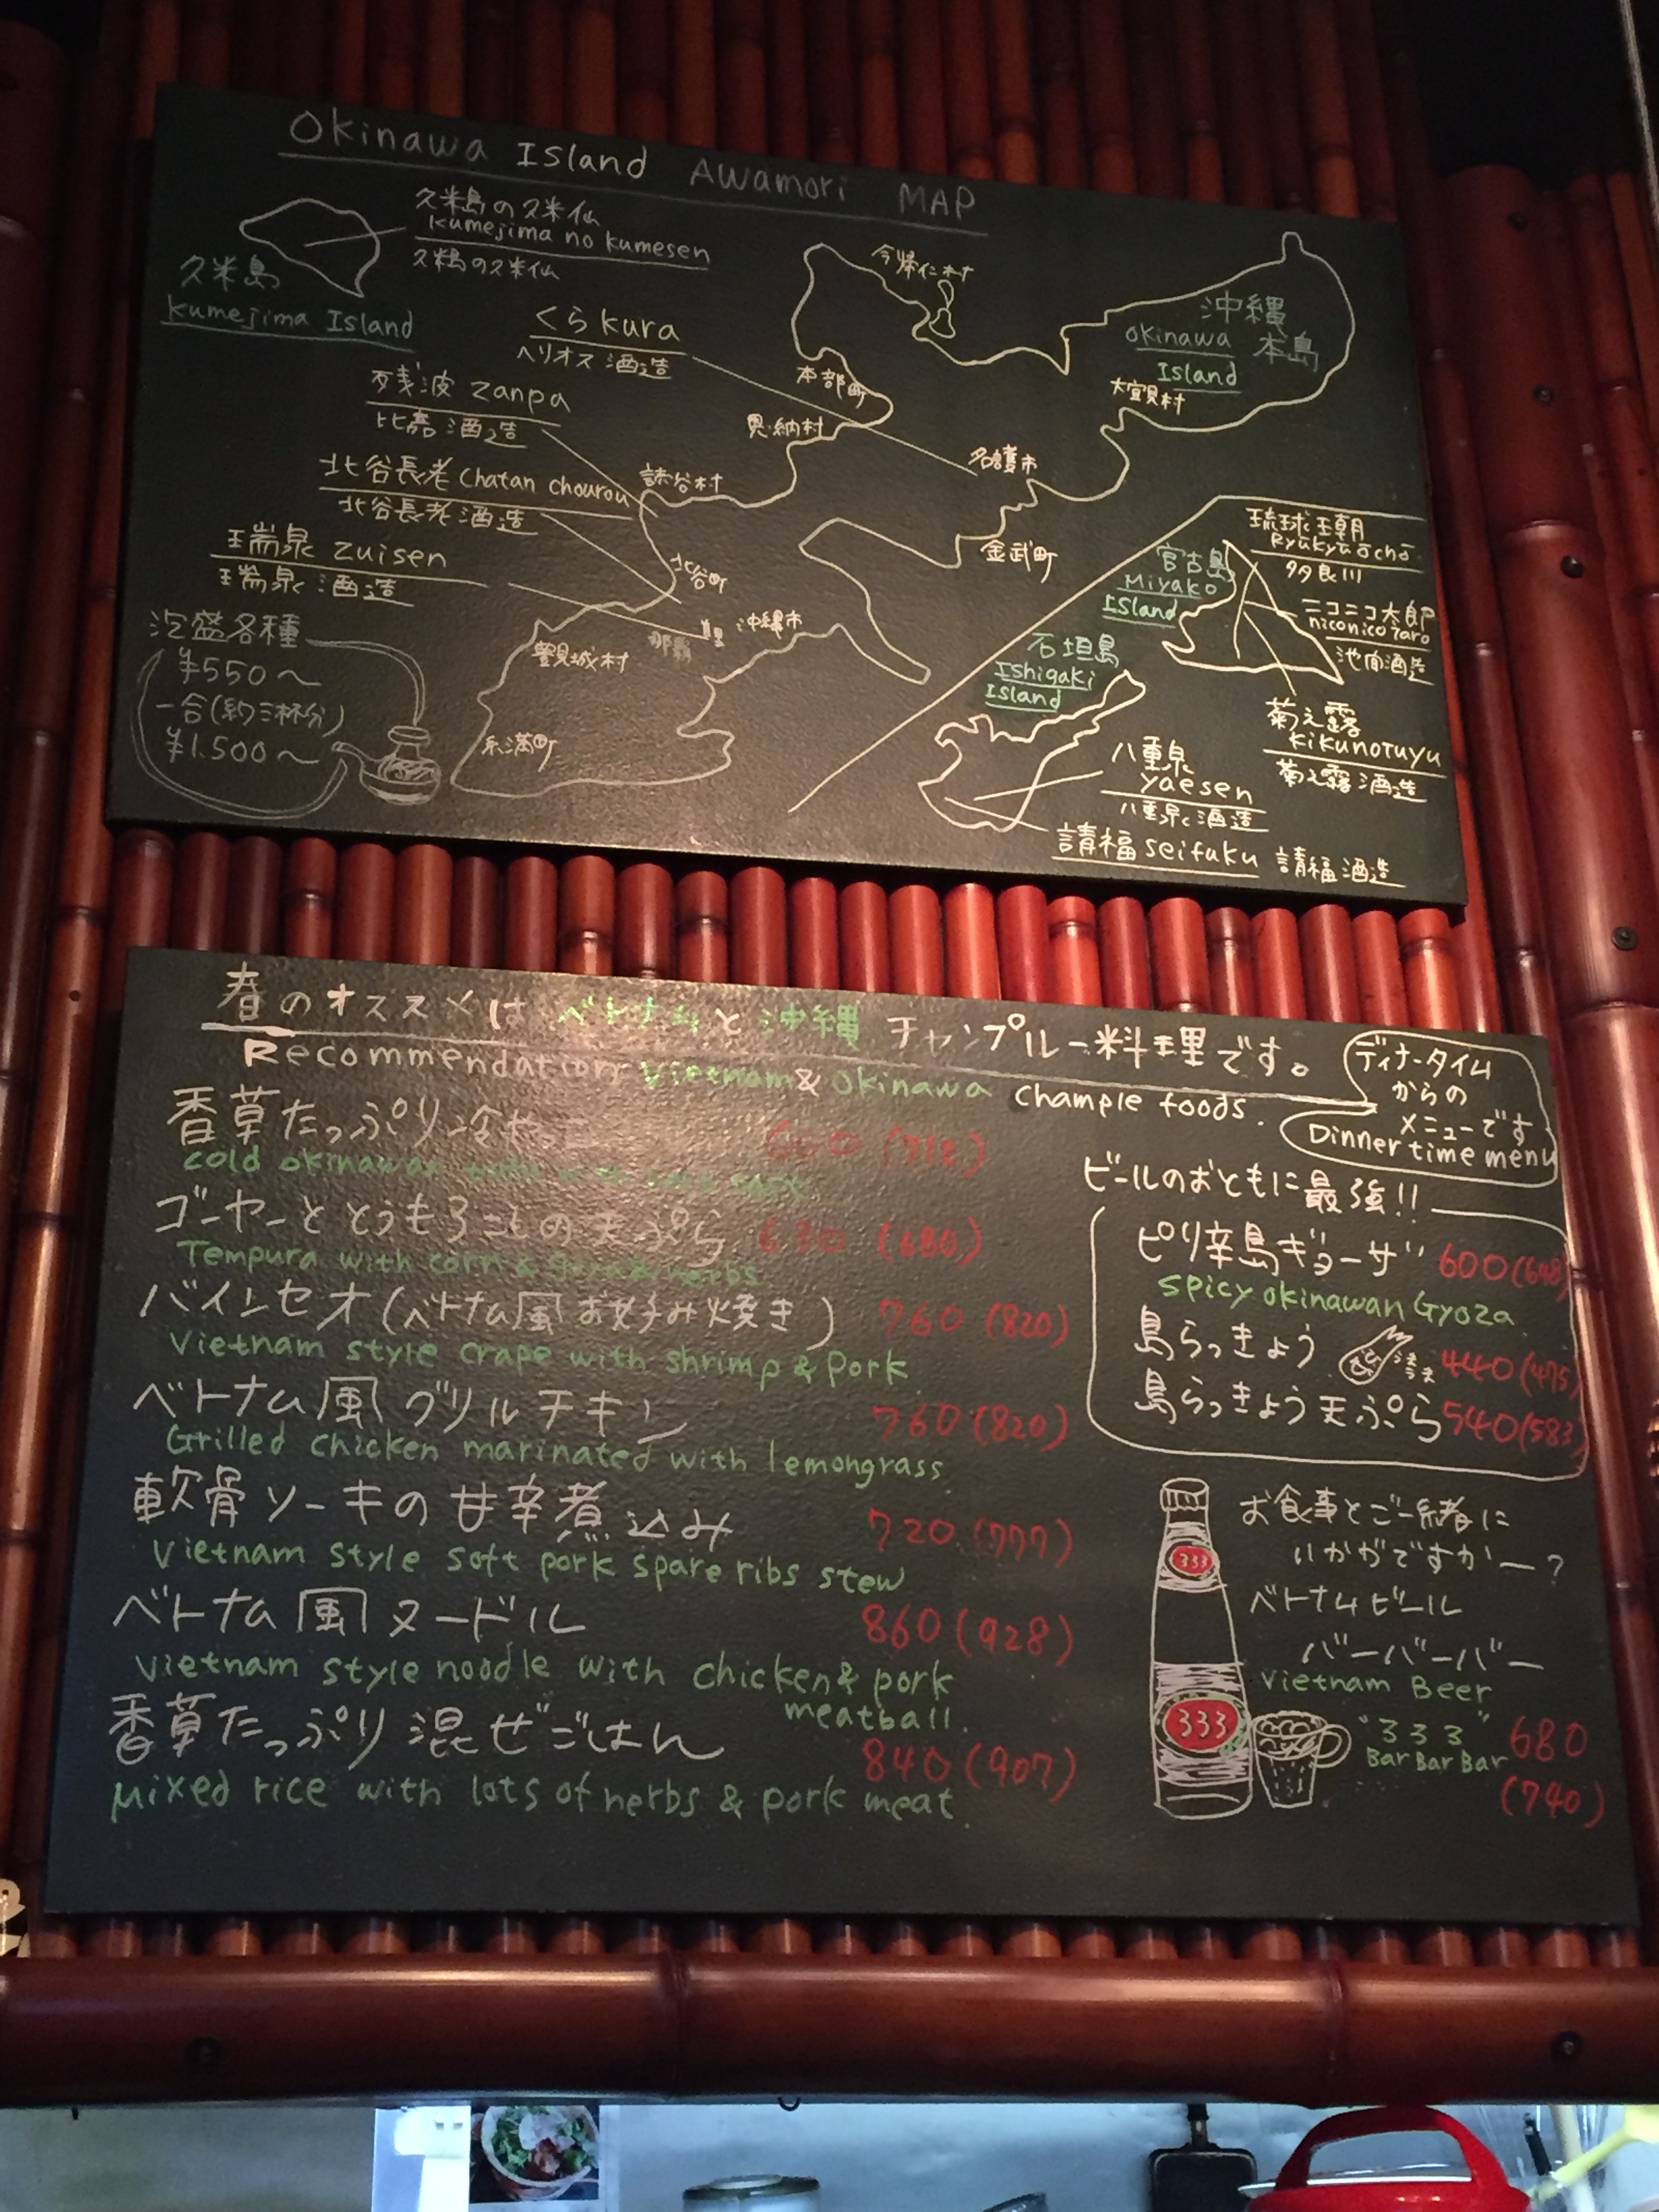 Okinawa Island Awamori MAP
久米島の久米仙
kumejima no kumesen
久米島の久米仙
久米島
kumejima Island
くら kura
ヘリオス酒造
残波 zanpa
比嘉酒造
北谷長老 chatan chourou
北谷長老酒造
瑞泉 zuisen
瑞泉酒造
泡盛各種
¥550〜
一合(約三杯分)
¥1.500〜
今帰仁村
沖縄
本島
okinawa
Island
本部町
大宜見村
恩納村
名護市
読谷村
金武町
北谷町
沖縄市
那覇
豊見城村
糸満町
琉球王朝
Ryūkyūōchō
多良川
宮古島
Miyako
Island
ニコニコ太郎
niconicoTaro
池間酒造
石垣島
Ishigaki
Island
菊之露
kikunotuyu
菊之露酒造
八重泉
yaesen
八重泉酒造
請福 seifuku 請福酒造
春のオススメは ベトナムと沖縄 チャンプルー料理です。
Recommendation Vietnam & Okinawa chample foods.
ディナータイム
からの
メニューです
Dinner time menu
香草たっぷり冷やっこ 660 (712)
cold okinawan
ゴーヤーととうもろこしの天ぷら 630 (680)
Tempura with corn & herbs
バインセオ(ベトナム風お好み焼き) 760 (820)
Vietnam style crape with shrimp & pork
ベトナム風グリルチキン 760 (820)
Grilled chicken marinated with lemongrass
軟骨ソーキの甘辛煮込み 720 (777)
Vietnam style soft pork spare ribs stew
ベトナム風ヌードル 860 (928)
Vietnam style noodle with chicken & pork
meatball.
香草たっぷり混ぜごはん 840 (907)
Mixed rice with lots of herbs & pork meat
ビールのおともに最強!!
ピリ辛島ギョーザ 600 (648)
Spicy okinawan Gyoza
島らっきょう 440 (475)
島らっきょう天ぷら 540 (583)
お食事とご一緒に
いかがですかー?
ベトナムビール
バーバーバー
Vietnam Beer
"333" 680
Bar Bar Bar
(740)
333
333